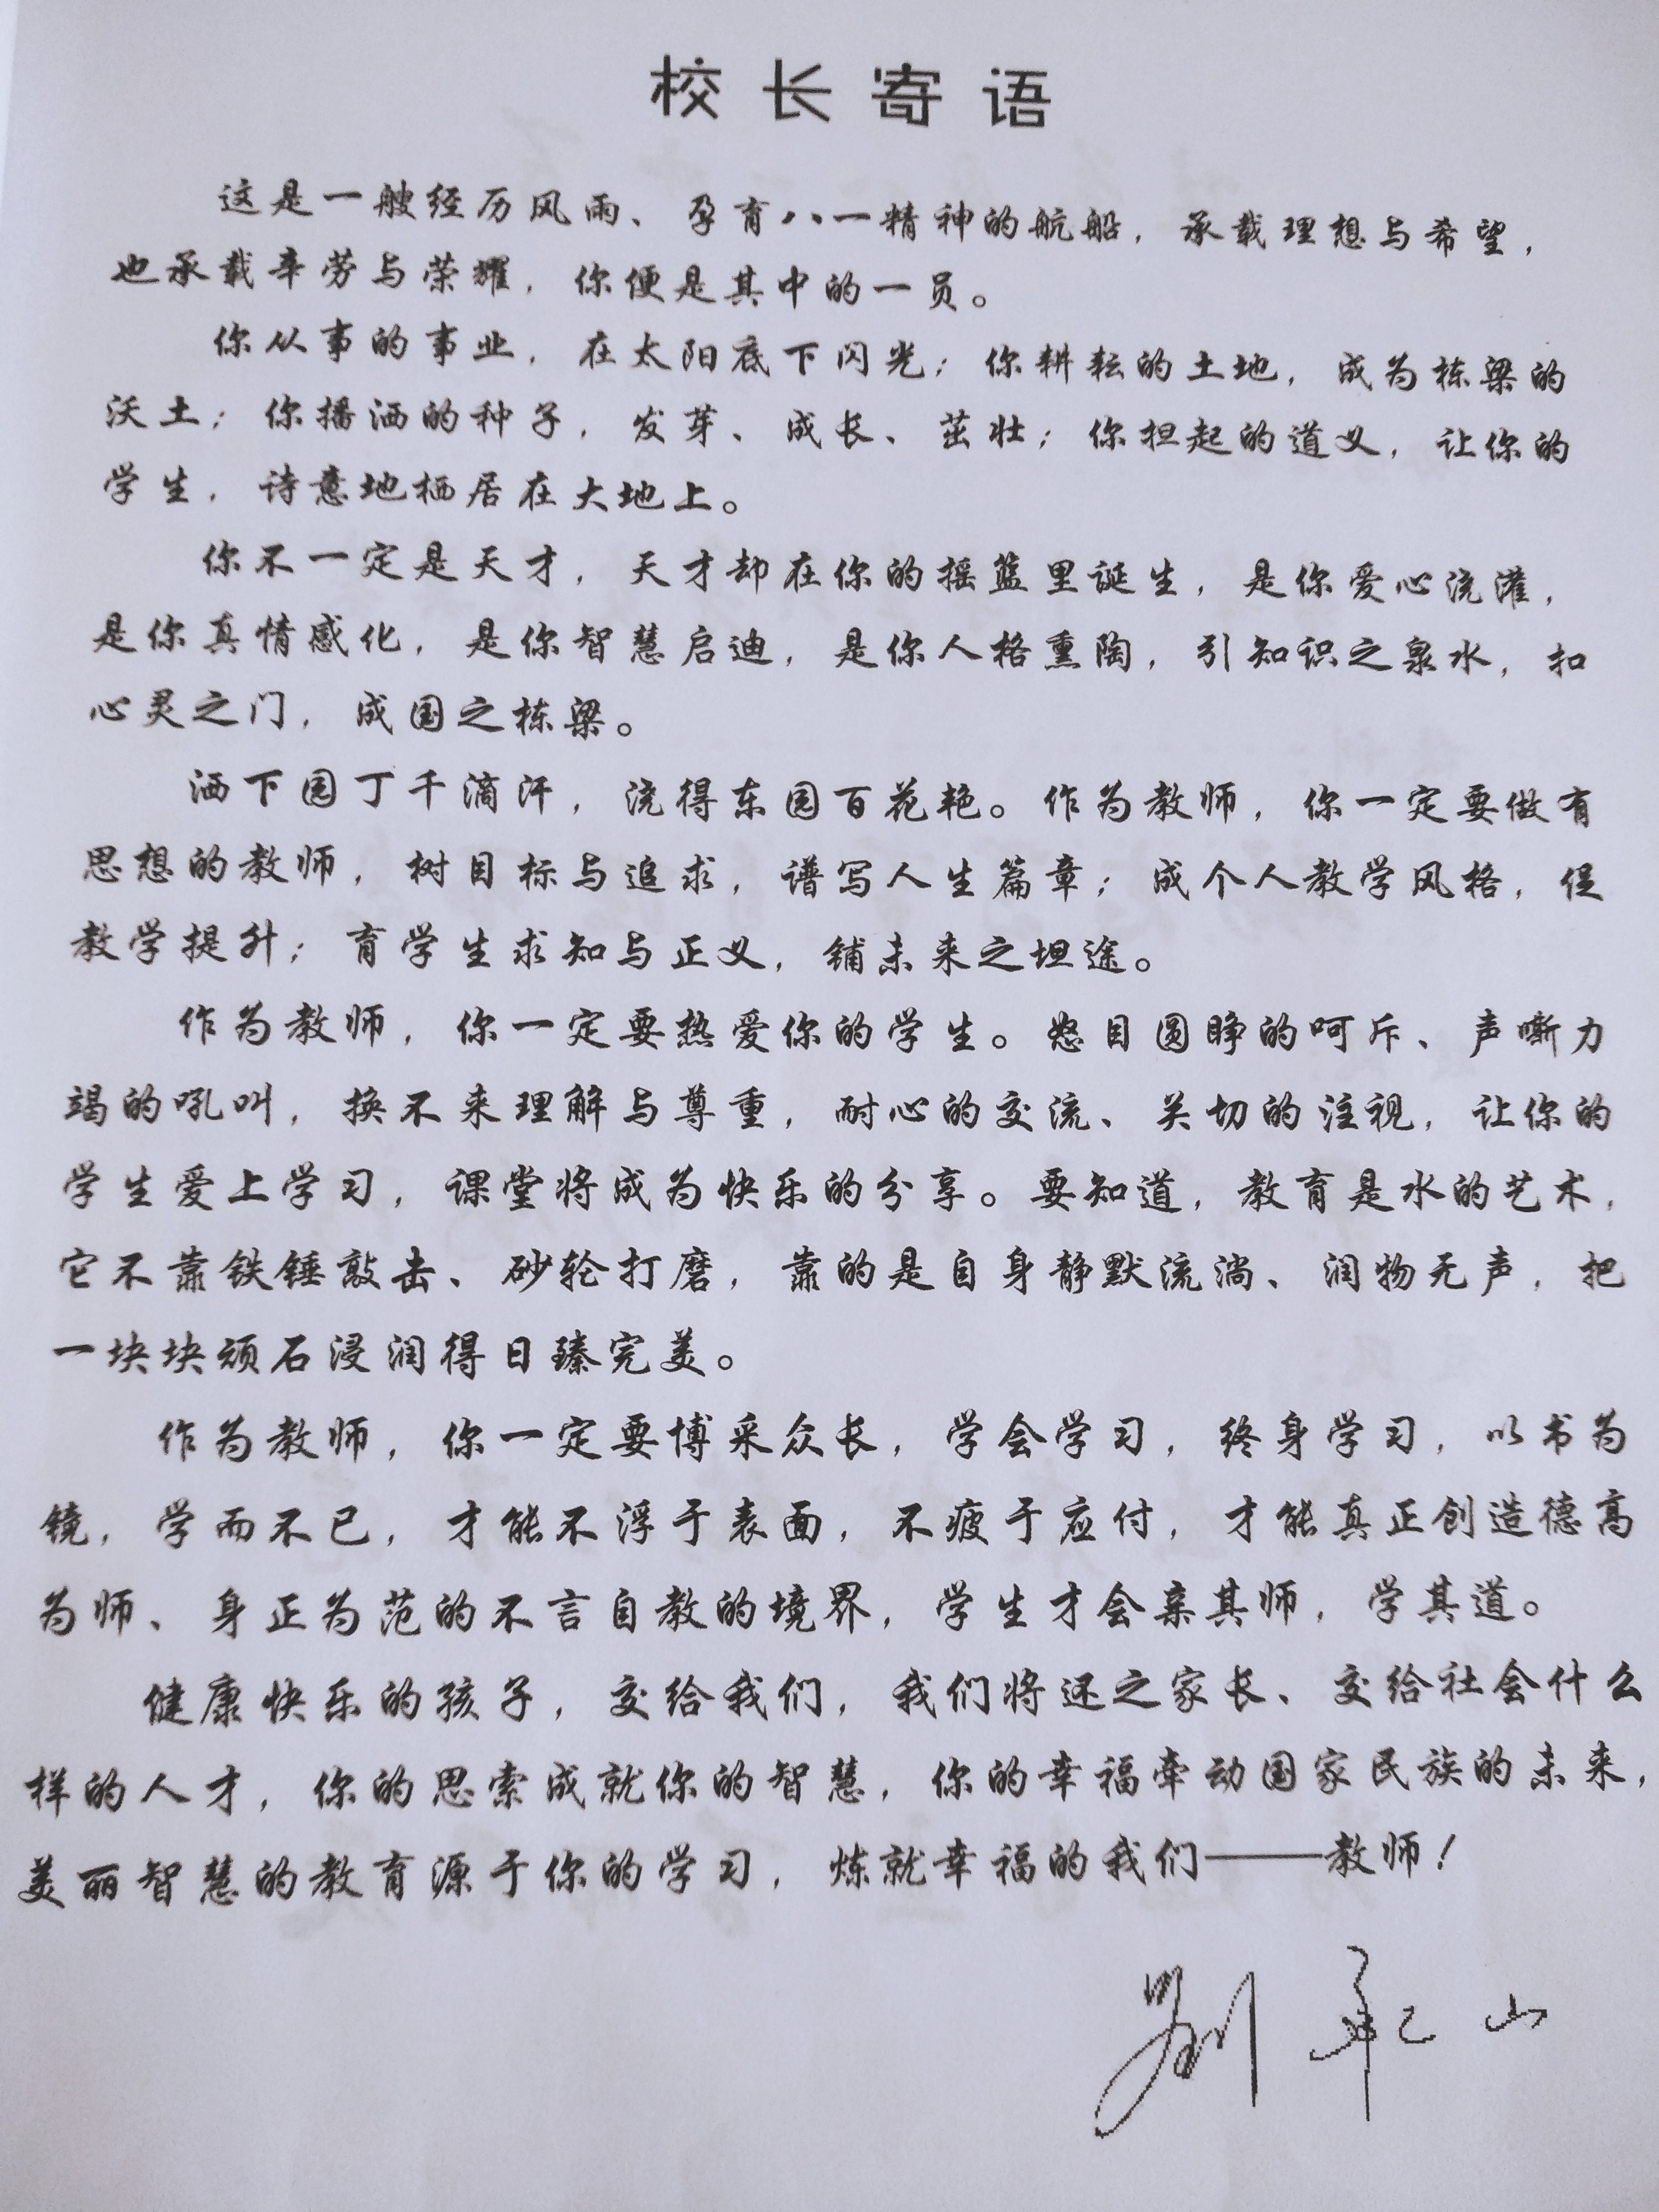 校长寄语
这是一艘经历风雨、孕育八一精神的航船，承载理想与希望，
也承载辛劳与荣耀，你便是其中的一员。
你从事的事业，在太阳底下闪光；你耕耘的土地，成为栋梁的
沃土；你播洒的种子，发芽、成长、茁壮；你担起的道义，让你的
学生，诗意地栖居在大地上。
你不一定是天才，天才却在你的摇篮里诞生，是你爱心浇灌，
是你真情感化，是你智慧启迪，是你人格熏陶，引知识之泉水，扣
心灵之门，成国之栋梁。
洒下园丁千滴汗，浇得东园百花艳。作为教师，你一定要做有
思想的教师，树目标与追求，谱写人生篇章；成个人教学风格，促
教学提升；育学生求知与正义，铺未来之坦途。
作为教师，你一定要热爱你的学生。怒目圆睁的呵斥、声嘶力
竭的吼叫，换不来理解与尊重，耐心的交流、关切的注视，让你的
学生爱上学习，课堂将成为快乐的分享。要知道，教育是水的艺术，
它不靠铁锤敲击、砂轮打磨，靠的是自身静默流淌、润物无声，把
一块块顽石浸润得日臻完美。
作为教师，你一定要博采众长，学会学习，终身学习，以书为
镜，学而不已，才能不浮于表面，不疲于应付，才能真正创造德高
为师、身正为范的不言自教的境界，学生才会亲其师，学其道。
健康快乐的孩子，交给我们，我们将还之家长、交给社会什么
样的人才，你的思索成就你的智慧，你的幸福牵动国家民族的未来，
美丽智慧的教育源于你的学习，炼就幸福的我们——教师！